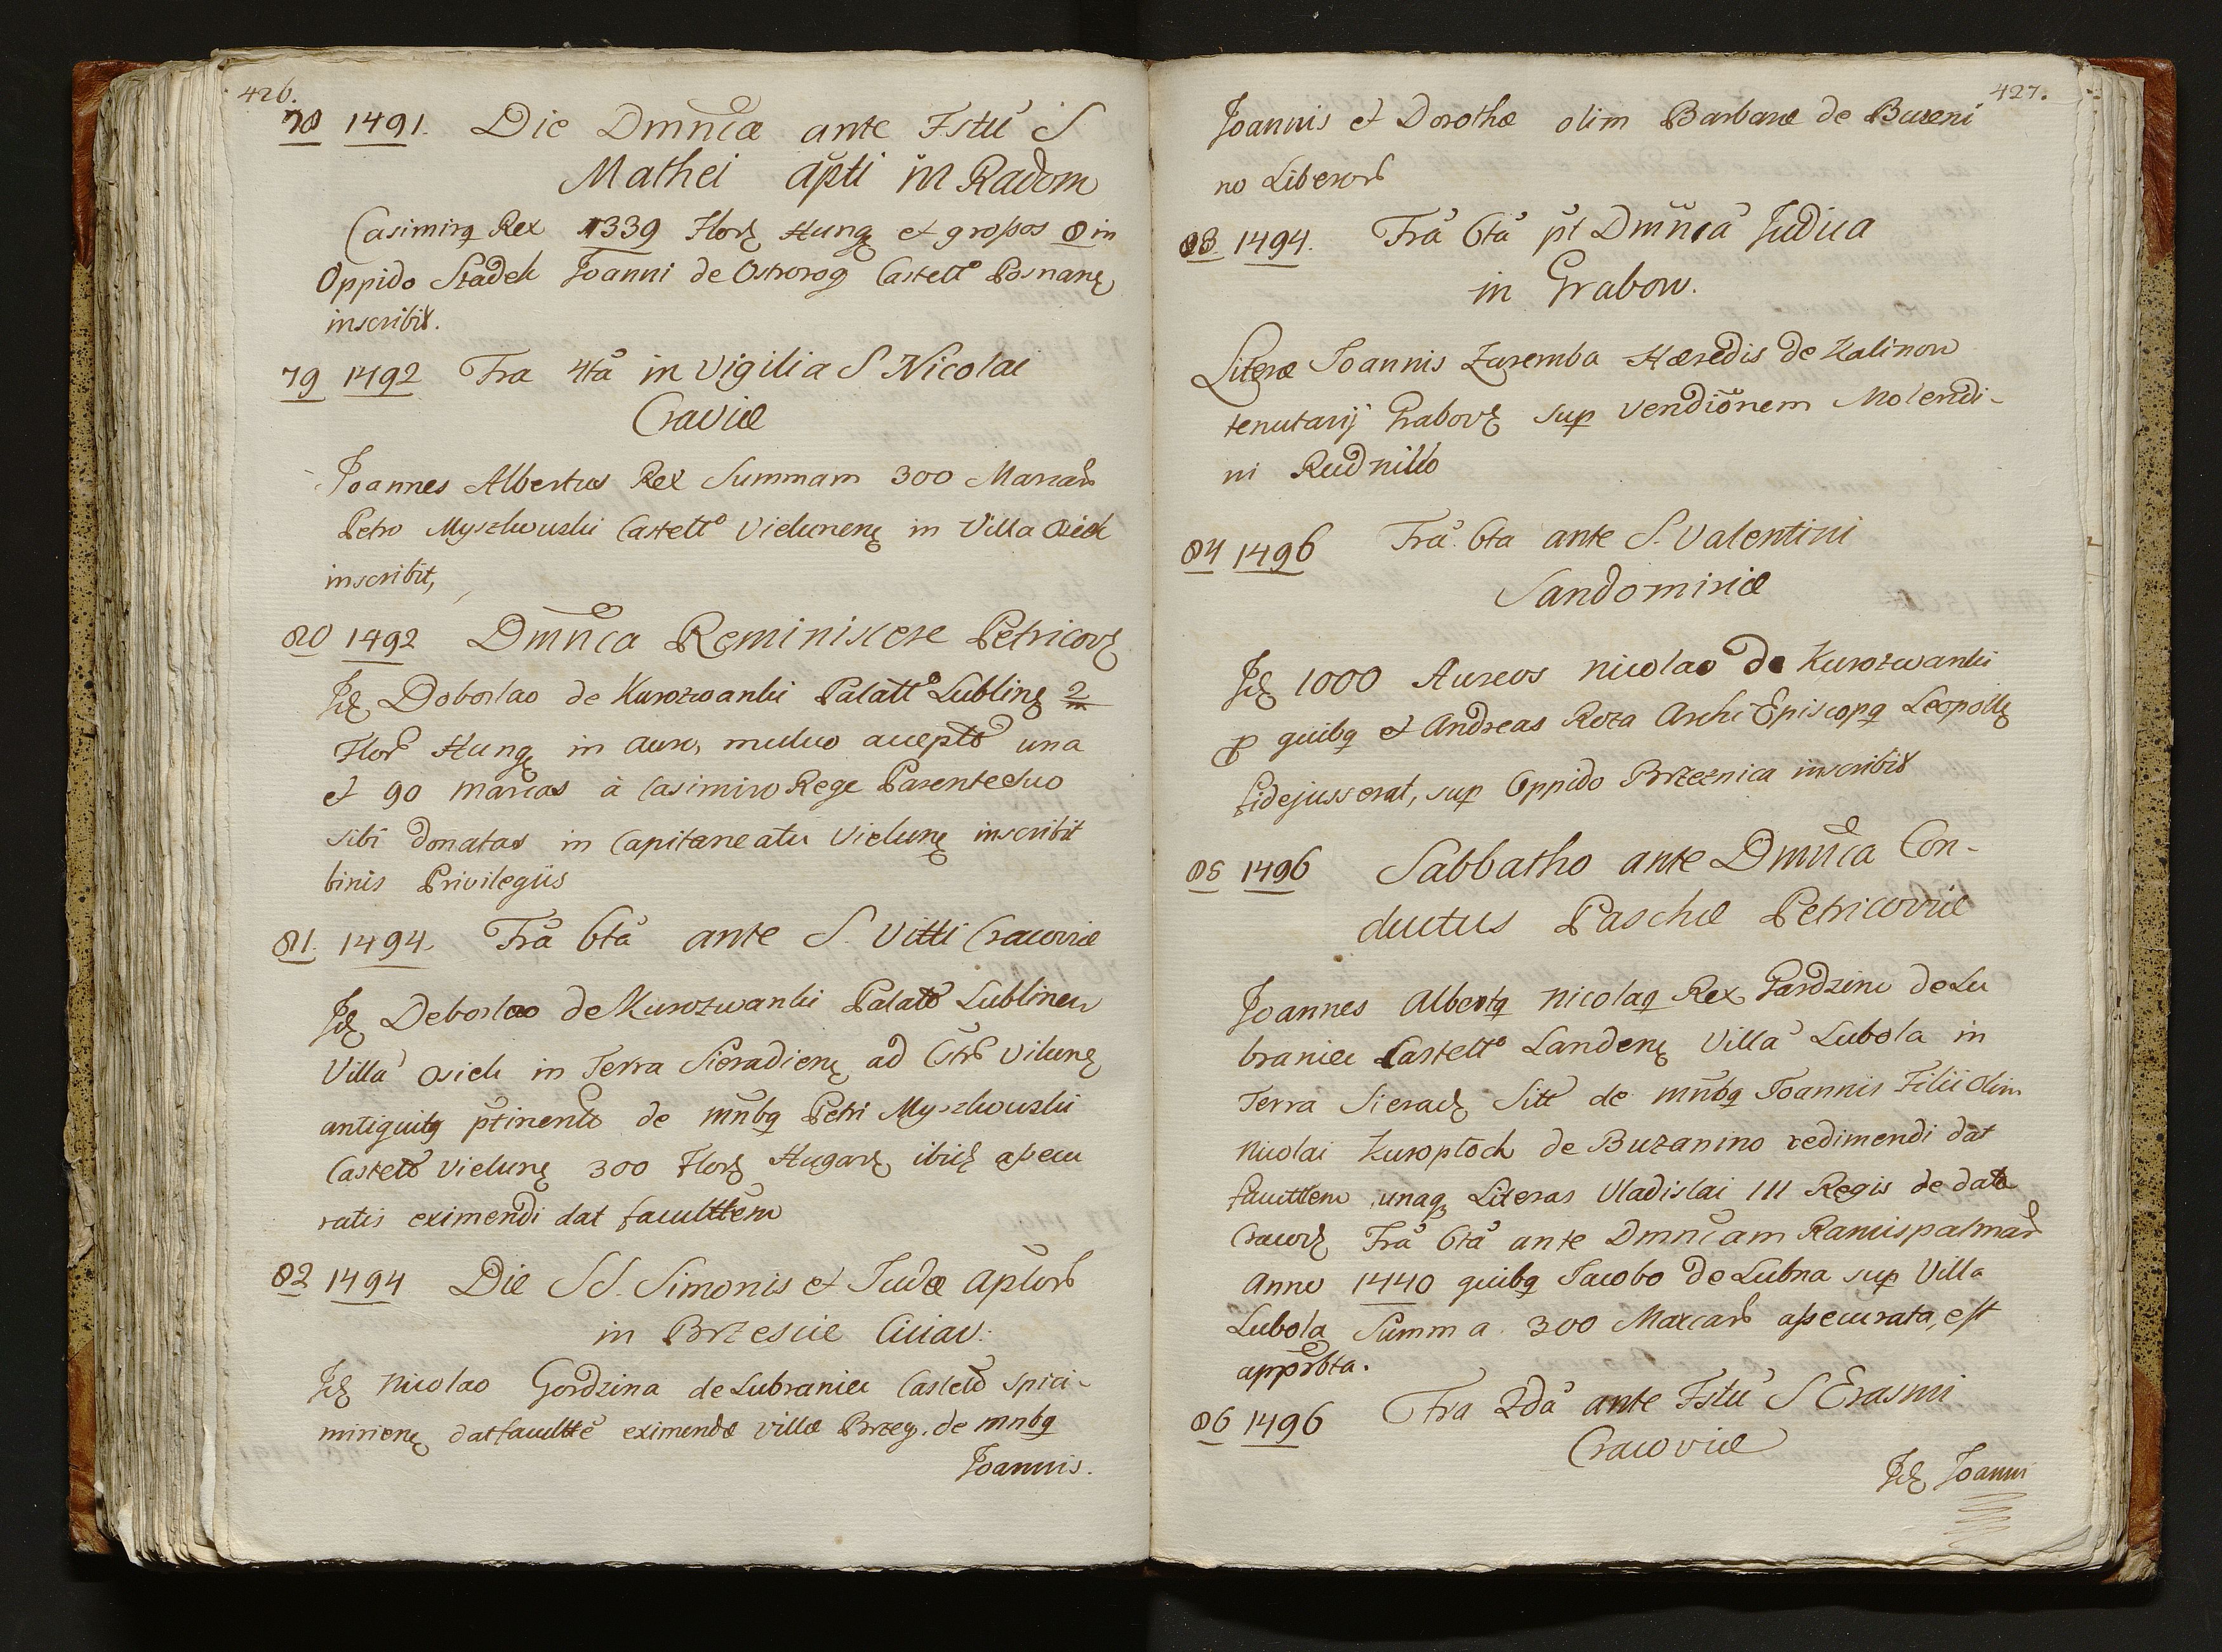 426.
78 1491. Die Dmnicâ ante Fstũ S
Mathei apti in Radom
Casimirq Rex 1339 Florʒ Hungʒ et grossos 8 in
Oppido Szadek Joanni de Ostrorog Castell° Posnanę
inscribit.
79 1492 Fra 4tâ in vigilia S Nicolai
Craviæ
Joannes Albertus Rex Summam 300 Marcar
Petro Myszkowski Castell° Vielunenę in Villa Osiek
inscribit,
80 1492 Dmnca Reminiscere Petricovʒ
Jdʒ Doboslao de Kurozwanki Palatt° Lublinę 2/m
Flor Hungę in auro, mutuo accepto una
et 90 marcas à Casimiro Rege Parente suo
sibi donatas in Capitaneatu Vielunę inscribit
binis Privilegiis
81. 1494. Frâ 6tâ ante S. Vitti Cracoviæ
Jdʒ Deboslao de Kurozwanki Palato Lublinen
Villâ Osiek in Terra Sieradienę ad Cstr Vilunę
antiquitq ptinente de mnbq Petri Myszkowski
Castello Vielunę 300 Florʒ Hugarʒ ibidʒ assecu
ratis eximendi dat facultem
82 1494 Die SS. Simonis et Judæ aptor
in Brzesciæ Cuiav:
Jdʒ Nicolao Gordzina de Lubraniec Castello Spici-
mirienę dat facultte eximendæ villæ Brzeg. de mnbq
Joannis.
427.
Joannis et Dorothæ olim Barbaræ de Bureni
no Liberor
83. 1494. Frâ 6tâ pt Dmnicâ Judica
in Grabow.
Literæ Joannis Zaremba Hæredis de Kalinow
tenutarij Grabovʒ sup vendiõnem Molendi-
ni Rudnicko
84 1496 Frâ 6ta ante S. Valentini
Sandomiriæ
Jdʒ 1000 Aureos Nicolao de Kurozwanki
p quibq et Andreas Roza Archi Episcopq Leopollę
fidejusserat, sup Oppido Brzeznica inscribit
85 1496 Sabbatho ante Dmnica Con-
ductus Paschæ Petricoviæ
Joannes Albertq Nicolaq Rex Gardzinu de Lu
braniec Castell° Landenę Villâ Lubola in
Terra Sieradʒ Sitt de mnbq Joannis Filii olim
Nicolai Kuroptoch de Buzanino redimendi dat
facultem unaqʒ Literas Vladislai III Regis de data
Cracovʒ Frâ 6tâ ante Dmnicam Ramispalmar
Anno 1440 quibq Jacobo de Lubna sup Villa
Lubola Summa 300 Marcar assecurata, est
approbta.
86 1496 Fra 2dâ ante Fstũ S Erasmi
Cracoviæ
Jdʒ Joanni